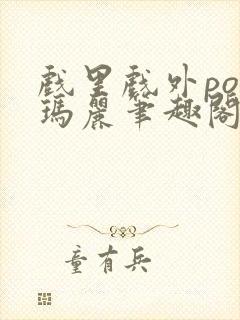 戲里戲外po
瑪麗筆趣閣
童有兵